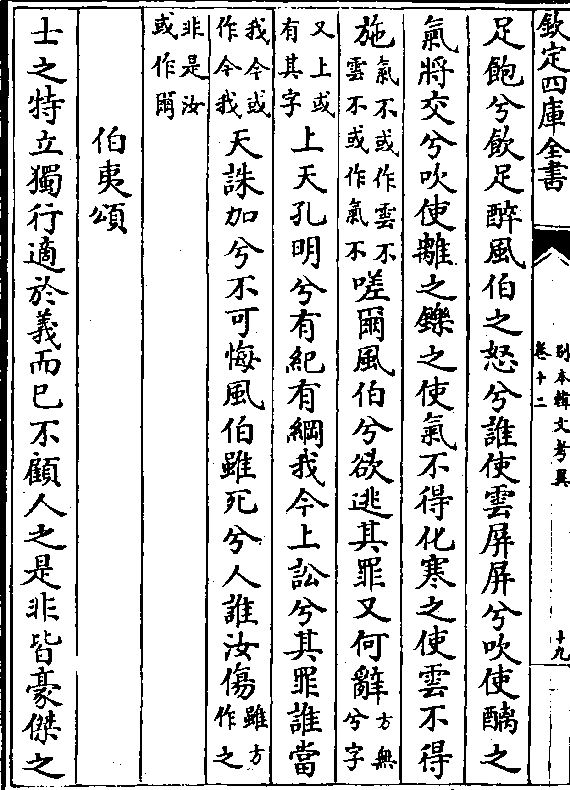 欽定四庫全書
別本韓文考異
卷十二
十九
足飽兮飲足醉風伯之怒兮誰使雲屏屏兮吹使醨之
氣將交兮吹使離之鑠之使氣不得化寒之使雲不得
施氣不或作雲不雲不或作氣不嗟爾風伯兮欲逃其罪又何辭方無兮字
又上或有其字上天孔明兮有紀有綱我今上訟兮其罪誰當
我今或作今我天誅加兮不可悔風伯雖死兮人誰汝傷雖方作之
非是汝或作爾
伯夷頌
士之特立獨行適於義而已不顧人之是非皆豪傑之